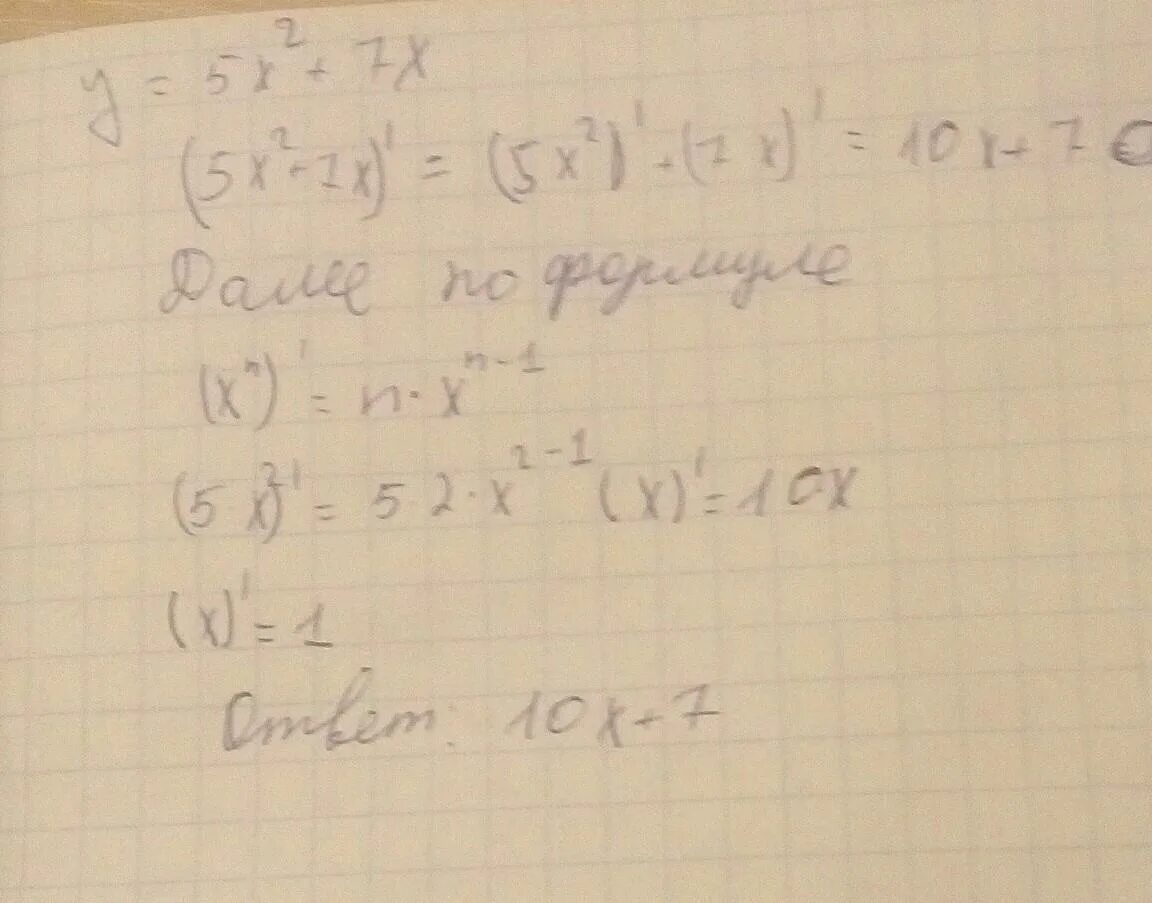 y = 5x² + 7x
(5x² + 7x)' = (5x²)' + (7x)' = 10x + 7
Далее по формуле
(xⁿ)' = n · xⁿ⁻¹
(5 x²)' = 5 2 · x²⁻¹ (x)' = 10x
(x)' = 1
Ответ: 10x + 7